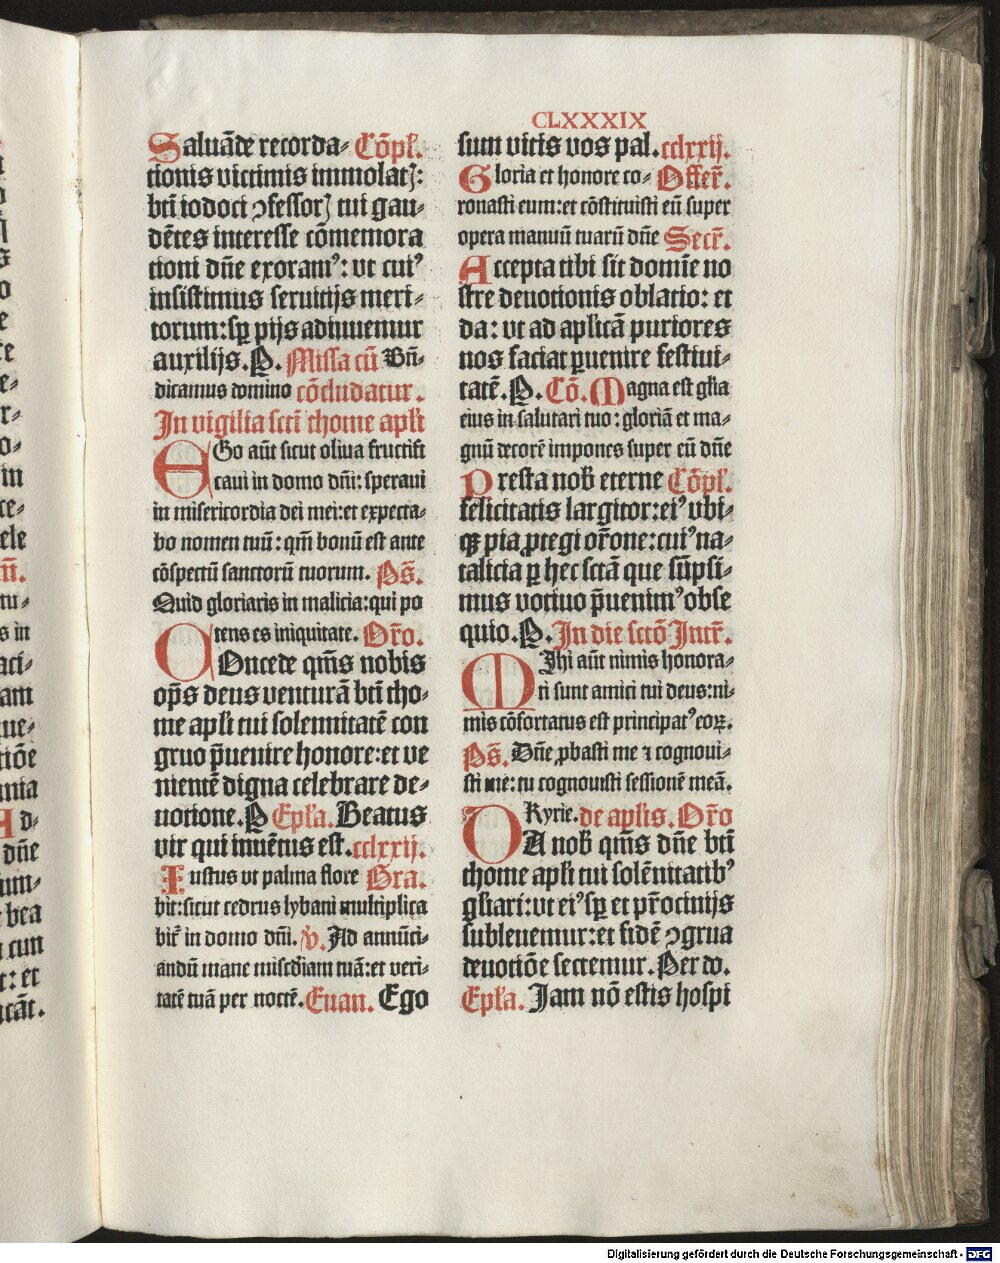 CLXXXIX
Saluāde recorda⸗ Cōpl̄.
tionis victimis immolatꝫ:
bti iodoci ↄfessorꝫ tui gau⸗
dētes interesse cōmemora
tioni dn̄e exoramꝰ: vt cuiꝰ
insistimus seruitijs meri⸗
torum: sꝑ pijs adiuuemur
auxilijs. P. Missa cū Bn̄⸗
dicamus domino cōcludatur.
In vigilia scti thome apli
EGo aūt sicut oliua fructifi
caui in domo dn̄i: speraui
in misericordia dei mei: et expecta⸗
bo nomen tuū: qm̄ bonū est ante
cōspectū sanctorū tuorum. Ps̄.
Quid gloriaris in malicia: qui po
tens es iniquitate. Or̄o.
COncede qm̄s nobis
op̄s deus venturā bti tho⸗
me apli tui solennitatē con
gruo p̄uenire honore: et ve
nientē digna celebrare de⸗
uotione. P Epl'a. Beatus
vir qui inuētus est. cclxxij.
Iustus vt palma flore Gra.
bit: sicut cedrus lybani multiplica
bit̄ in domo dn̄i. V. Ad annūci⸗
andū mane miscdiam tuā: et veri⸗
tatē tuā per noctē. Euan. Ego
sum vitis vos pal. cclxxij.
Gloria et honore co⸗ Offer̄.
ronasti eum: et cōstituisti eū super
opera manuū tuarū dn̄e Secr̄.
Accepta tibi sit domīe no
stre deuotionis oblatio: et
da: vt ad aplicā puriores
nos faciat ꝑuenire festiui⸗
tatē. P. Cō. Magna est gl'ia
eius in salutari tuo: gloriā et ma⸗
gnū decorē impones super eū dn̄e
Presta nob̄ eterne Cōpl̄.
felicitatis largitor: eiꝰ vbi⸗
qꝫ pia ꝓtegi or̄one: cuiꝰ na⸗
talicia ꝑ hec sctā que sūpsi⸗
mus votiuo p̄uenimꝰ obse
quio. P. In die sctō Intr̄.
MIhi aūt nimis honora⸗
ti sunt amici tui deus: ni⸗
mis cōfortatus est principatꝰ eoꝝ.
Ps̄. Dn̄e ꝓbasti me ⁊ cognoui⸗
sti me: tu cognouisti sessionē meā.
Kyrie. de aplis. Or̄o
DA nob̄ qm̄s dn̄e bti
thome apli tui solēnitatibꝰ
gl'iari: vt eiꝰ sꝑ et pr̄ocinijs
subleuemur: et fidē ↄgrua
deuotiōe sectemur. Per do.
Epl'a. Jam nō estis hospi
Digitalisierung gefördert durch die Deutsche Forschungsgemeinschaft - DFG